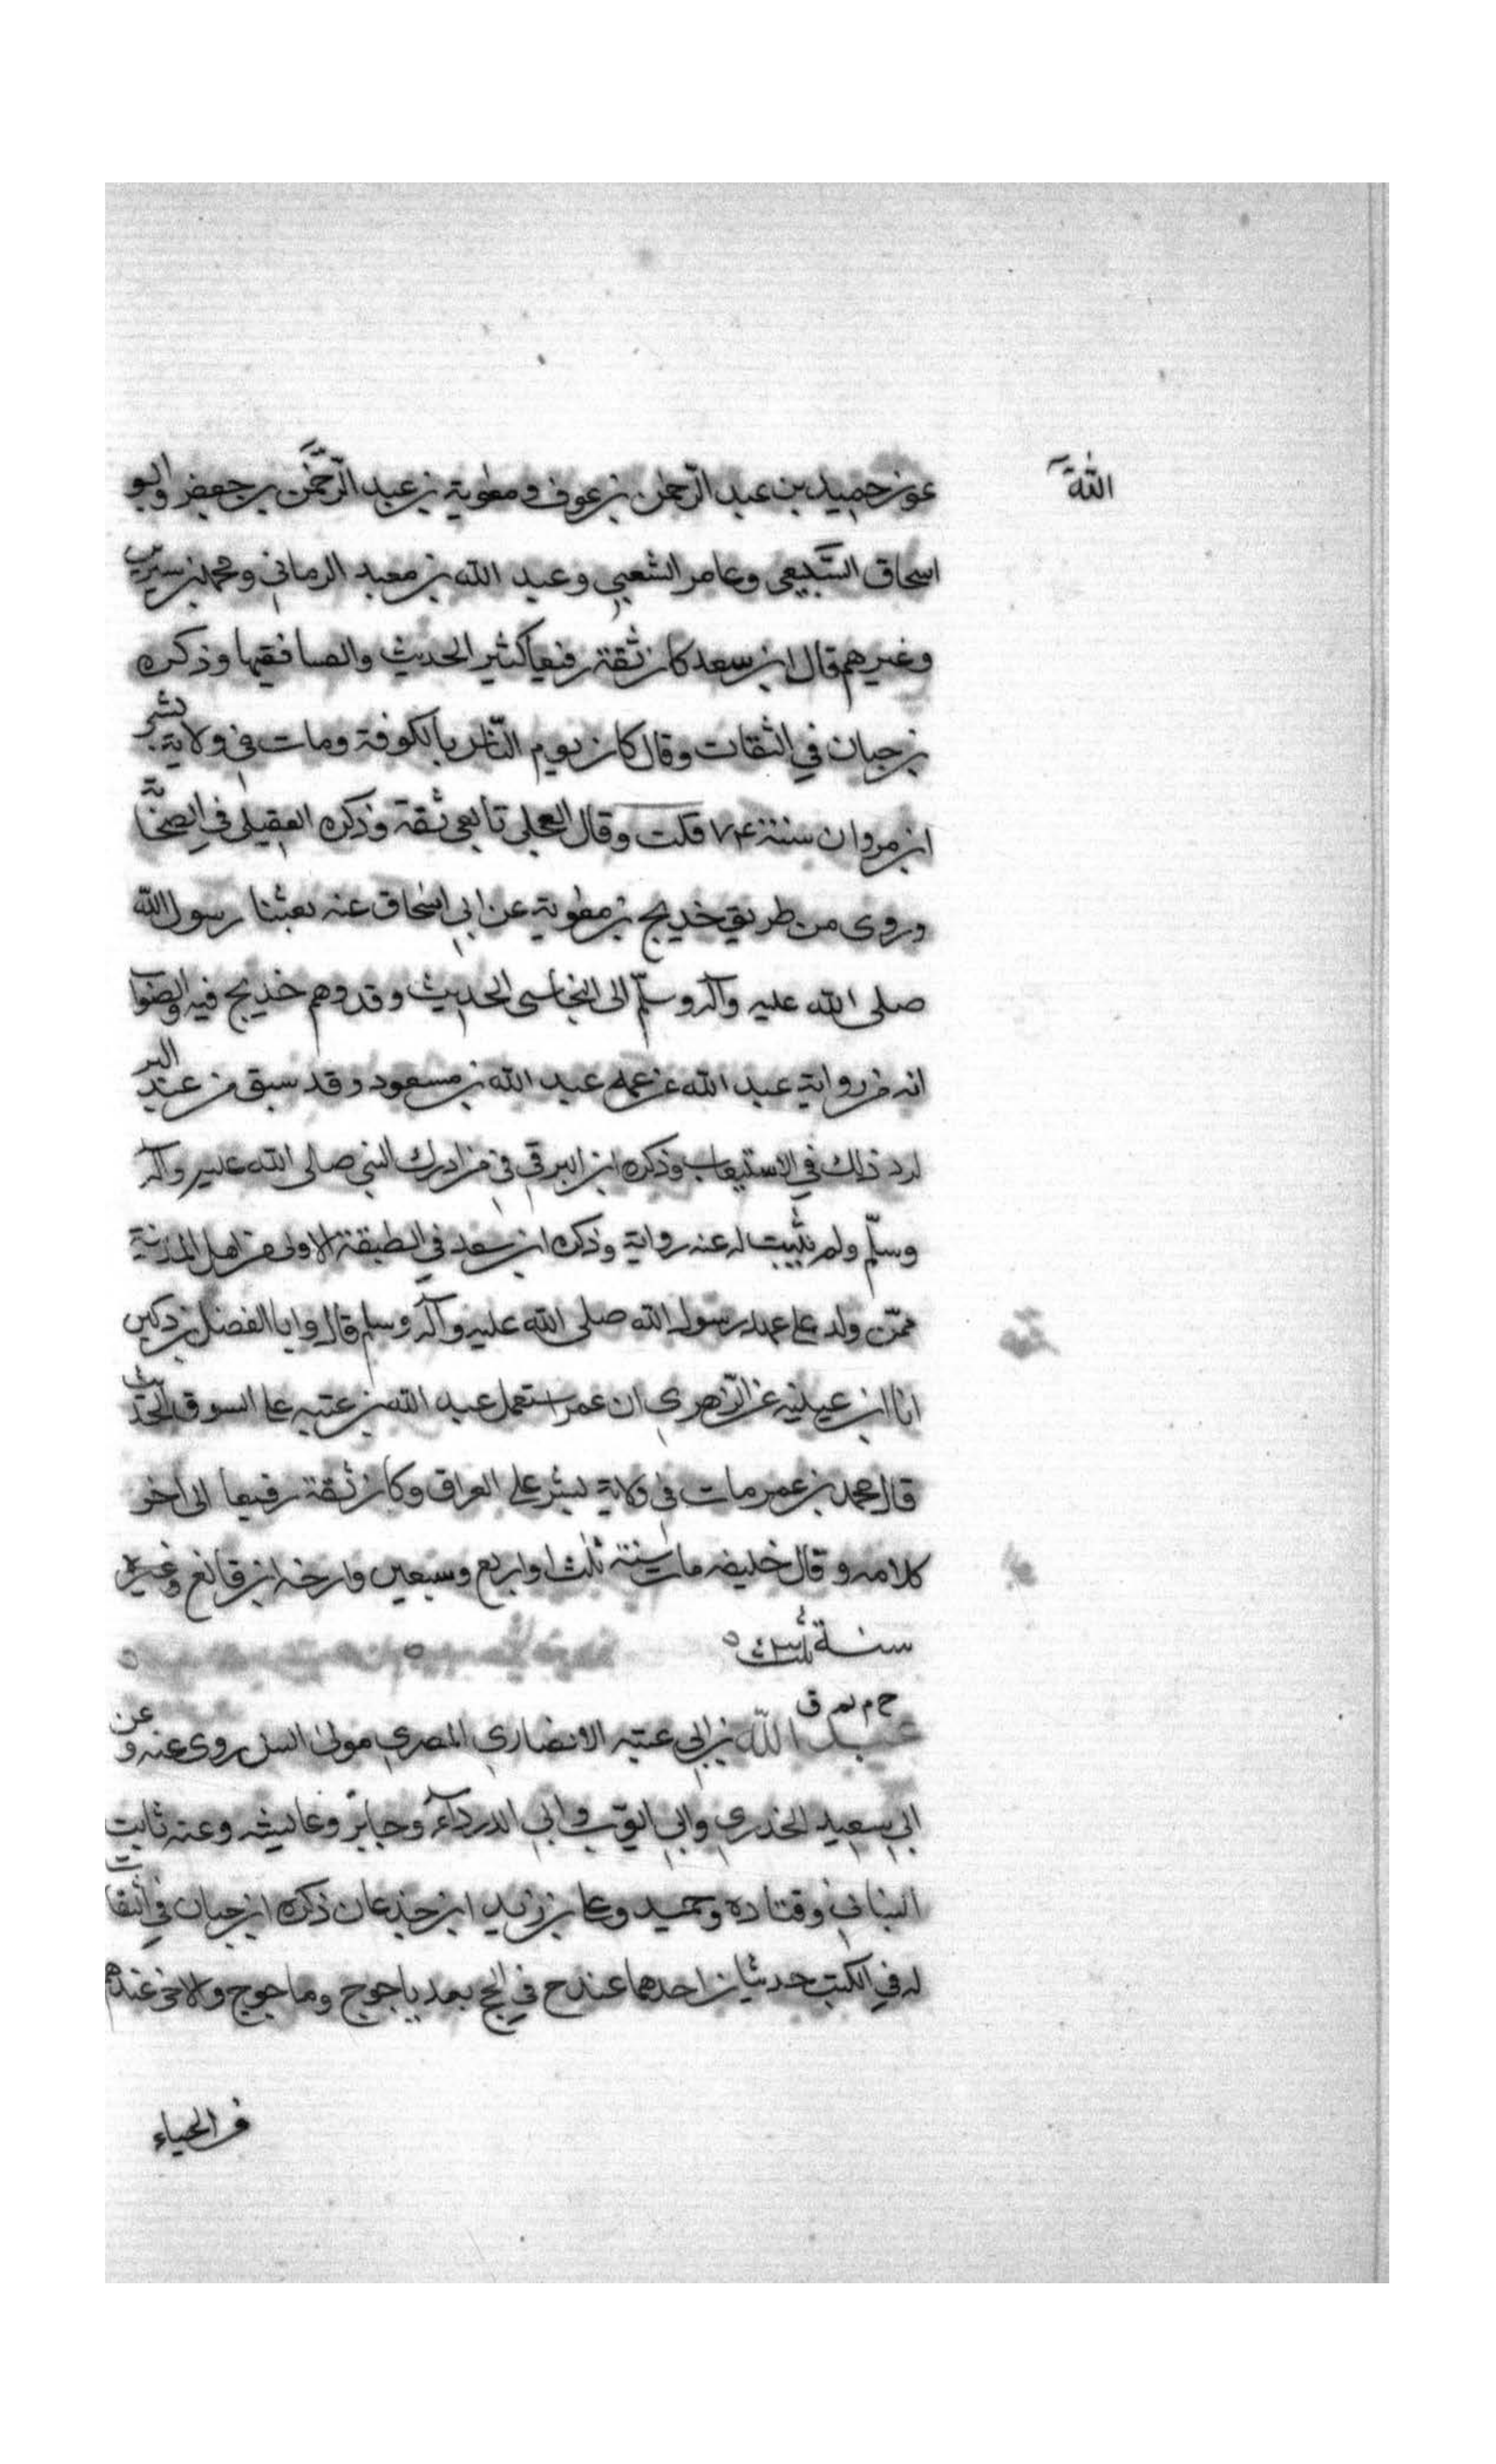 الثقة
عون حميد بن عبد الرحمن بن عوف ومعوية بن عبد الرحمن بن جعفر وابو
اسحاق السبيعى وعامر الشعبي وعبد الله بن معبد الرماني ومحمد بن سيرين
وغيرهم قال ابن سعد كان ثقة رفيعا كثير الحديث والفتيا فقيها وذكره
بن حبان في الثقات وقال كان يوم الناس بالكوفة ومات في ولاية بشر
ابن مروان سنة ٧۴ قلت وقال العجلى تابعى ثقة وذكره العقيلى في الصحابة
وروى من طريق خديج بن معوية عن ابي اسحاق عنه بعثنا رسول الله
صلى الله عليه وآله وسلم الى النجاشى الحديث وقد وهم خديج فيه والصواب
انه من رواية عبد الله عن عمه عبد الله بن مسعود وقد سبق من عبد البر
لرد ذلك في الاستيعاب وذكره ابن البرقي في من ادرك النبي صلى الله عليه وآله
وسلم ولم يثبت له عنه رواية وذكره ابن سعد في الطبقة الاولى من اهل المدينة
ممن ولد على عهد رسول الله صلى الله عليه وآله وسلم قال وابا الفضل بن دكين
انا ابن عيينه عن الزهري ان عمر استعمل عبد الله بن عتبه على السوق الحديث
قال محمد بن عمر مات في ولاية بشر على العراق وكان ثقة رفيعا الى اخر
كلامه وقال خليفه مات سنة ثلث او اربع وسبعين وارخه ابن قانع وغيره
سنة ثلث ه
خ م تم ق
عبد الله بن ابي عتبه الانصاري المصري مولى انس روى عنه وعن
ابي سعيد الخدري وابي ايوب وابي الدرداء وجابر وعايشه وعنه ثابت
البناني وقتاده وحميد وعلى بن زيد ابن جذعان ذكره ابن حبان في الثقات
له في الكتب حديثان احدهما عند خ في الحج بعد ياجوج وماجوج والاخر عندهم
في الحياء